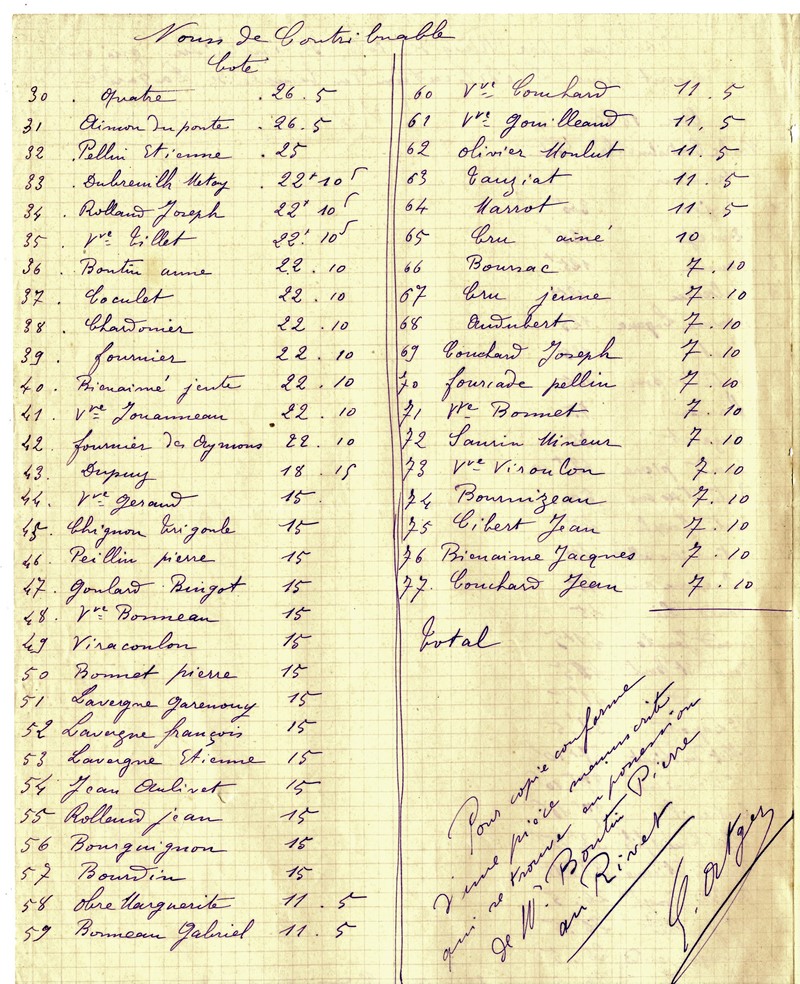 Noms de Contribuable
Cote
30 . Quatre . 26 . 5
31 Aimon Duponte . 26 . 5
32 . Pellin Etienne . 25
33 . Dubreuilh Metay . 22 . 10 5
34 . Rolland Joseph 22 . 10 5
35 . Vve Tillet 22 . 10 5
36 . Boutin anne 22 . 10
37 . Coculet 22 . 10
38 . Chardonier 22 . 10
39 . fournier 22 . 10
40 . Bienaimé jente 22 . 10
41 . Vve Jouanneau 22 . 10
42 . fournier des Aymons 22 . 10
43 . Dupuy 18 . 15
44 . Vve Geraud 15
45 . Chignon Trigoule 15
46 Peillin pierre 15
47 . Goulard Bingot 15
48 . Vve Bonneau 15
49 Viracoulon 15
50 Bonnet pierre 15
51 Lavergne Garenouy 15
52 Lavergne françois 15
53 Lavergne Etienne 15
54 Jean Aulivet 15
55 Rolland jean 15
56 Bourguignon 15
57 Bourdin 15
58 obre Marguerite 11 . 5
59 Bonneau Gabriel 11 . 5
60 Vve Couchard 11 . 5
61 Vve Gouilleaud 11 . 5
62 olivier Moulut 11 . 5
63 Tauziat 11 . 5
64 Marrot 11 . 5
65 Cru ainé 10
66 Boursac 7 . 10
67 Cru jeune 7 . 10
68 Audubert 7 . 10
69 Couchard Joseph 7 . 10
70 fourcade pellin 7 . 10
71 Vve Bonnet 7 . 10
72 Saurin Mineur 7 . 10
73 Vve Viroulon 7 . 10
74 Bournizeau 7 . 10
75 Cibert Jean 7 . 10
76 Bienaime Jacques 7 . 10
77 . Couchard Jean 7 . 10
Total
Pour copie conforme
d'une pièce manuscrite
qui se trouve en possession
de Mr Boutin Pierre
au Rivet